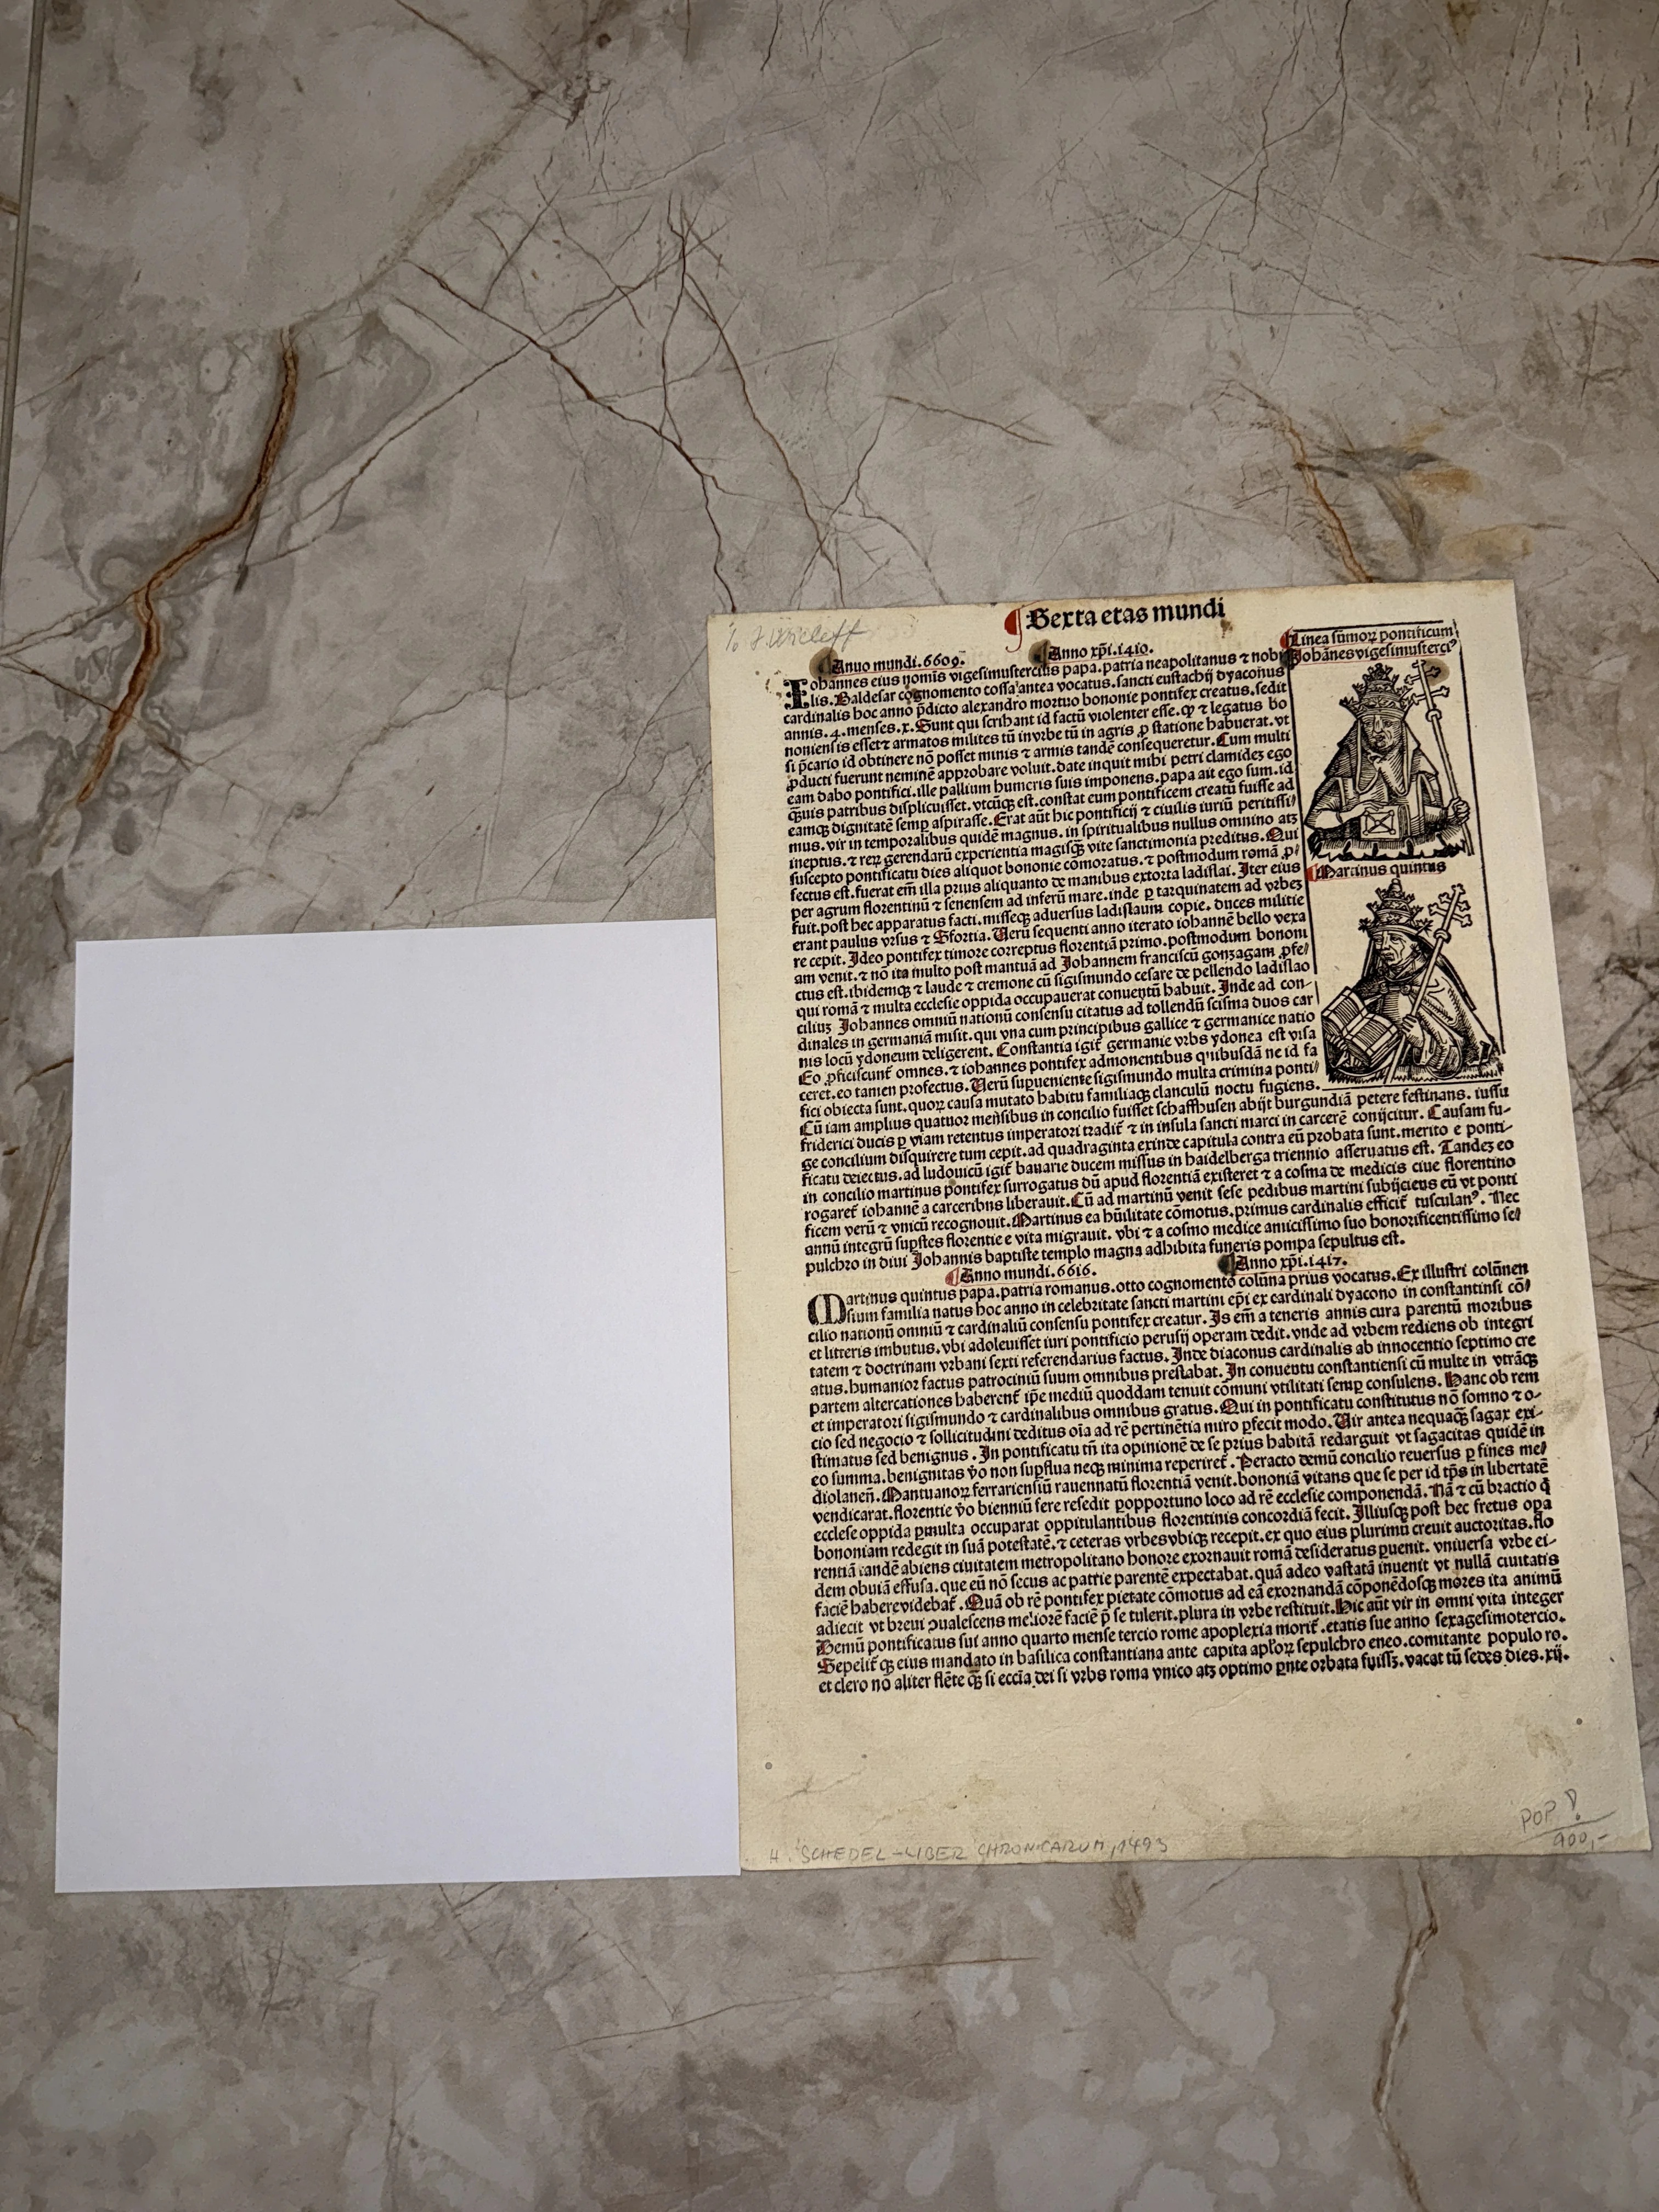 Sexta etas mundi
Linea sūmoꝝ pontificum
Johānes vigesimusterciꝰ
Anno mundi.6609.
Anno xp̄i.1410.
Iohannes eius nomīs vigesimustercius papa.patria neapolitanus ⁊ nobi
lis.Baldesar cognomento cossa antea vocatus.sancti eustachij dyaconus
cardinalis hoc anno p̄dicto alexandro mortuo bononie pontifex creatus.sedit
annis.4.menses.x.Sunt qui scribant id factū violenter esse.ꝙ ⁊ legatus bo
noniensis esset ⁊ armatos milites tū in vrbe tū in agris ꝓ statione habuerat.vt
si p̄cario id obtinere nō posset minis ⁊ armis tandē consequeretur.Cum multi
ꝓducti fuerunt neminē approbare voluit.date inquit mihi petri clamidez ego
eam dabo pontifici.ille pallium humeris suis imponens.papa ait ego sum.id
q̄uis patribus displicuisset.vtcūqꝫ est.constat eum pontificem creatū fuisse ad
eamqꝫ dignitatē semꝑ aspirasse.Erat aūt hic pontificij ⁊ ciuilis iuriū peritissi
mus.vir in temporalibus quidē magnus.in spiritualibus nullus omnino atꝫ
ineptus.⁊ reꝝ gerendarū experientia magisq̄ꝫ vite sanctimonia preditus.Qui
suscepto pontificatu dies aliquot bononie cōmoratus.⁊ postmodum romā ꝓ
fectus est.fuerat em̄ illa prius aliquanto de manibus extorta ladislai.Iter eius
per agrum florentinū ⁊ senensem ad inferū mare.inde ꝑ tarquinatem ad vrbez
fuit.post hec apparatus facti.misseqꝫ aduersus ladislaum copie.duces militie
erant paulus vrsus ⁊ Sfortia.Uerū sequenti anno iterato iohannē bello vexa
re cepit.Ideo pontifex timore correptus florentiā primo.postmodum bononi
am venit.⁊ nō ita multo post mantuā ad Johannem franciscū gonzagam ꝓfe
ctus est.ibidemqꝫ ⁊ laude ⁊ cremone cū sigismundo cesare de pellendo ladislao
qui romā ⁊ multa ecclesie oppida occupauerat conuentū habuit.Inde ad con-
ciliuꝫ Johannes omniū nationū consensu citatus ad tollendū scisma duos car
dinales in germaniā misit.qui vna cum principibus gallice ⁊ germanice natio
nis locū ydoneum deligerent.Constantia igit̄ germanie vrbs ydonea est visa
Eo ꝓficiscunt̄ omnes.⁊ iohannes pontifex admonentibus quibusdā ne id fa
ceret.eo tamen profectus.Uerū suꝑueniente sigismundo multa crimina ponti
fici obiecta sunt.quoꝝ causa mutato habitu familiaqꝫ clanculū noctu fugiens.
Cū iam amplius quatuor mensibus in concilio fuisset schaffhusen abijt burgundiā petere festinans.iussu
friderici ducis ꝑ viam retentus imperatori tradit̄ ⁊ in insula sancti marci in carcerē conijcitur.Causam fu-
ge concilium disquirere tum cepit.ad quadraginta exinde capitula contra eū probata sunt.merito e ponti-
ficatu deiectus.ad ludouicū igit̄ bauarie ducem missus in haidelberga triennio asseruatus est.Tandez eo
in concilio martinus pontifex surrogatus dū apud florentiā existeret ⁊ a cosma de medicis ciue florentino
rogaret̄ iohannē a carceribus liberauit.Cū ad martinū venit sese pedibus martini subijciens eū vt ponti
ficem verū ⁊ vnicū recognouit.Martinus ea hūilitate cōmotus.primus cardinalis efficit̄ tusculanꝰ.Nec
annū integrū suꝑstes florentie e vita migrauit.vbi ⁊ a cosmo medice amicissimo suo honorificentissimo se
pulchro in diui Johannis baptiste templo magna adhibita funeris pompa sepultus est.
Martinus quintus
Anno mundi.6616.
Anno xp̄i.1417.
Martinus quintus papa.patria romanus.otto cognomento colūna prius vocatus.Ex illustri colūnen
sium familia natus hoc anno in celebritate sancti martini ep̄i ex cardinali dyacono in constantinsi cō
cilio nationū omniū ⁊ cardinaliū consensu pontifex creatur.Is em̄ a teneris annis cura parentū moribus
et litteris imbutus.vbi adoleuisset iuri pontificio perusij operam dedit.vnde ad vrbem rediens ob integri
tatem ⁊ doctrinam vrbani sexti referendarius factus.Inde diaconus cardinalis ab innocentio septimo cre
atus.humanior factus patrociniū suum omnibus prestabat.In conuentu constantiensi cū multe in vtrāqꝫ
partem altercationes haberent̄ ip̄e mediū quoddam tenuit cōmuni vtilitati semꝑ consulens.Hanc ob rem
et imperatori sigismundo ⁊ cardinalibus omnibus gratus.Qui in pontificatu constitutus nō somno ⁊ o-
cio sed negocio ⁊ sollicitudini deditus oīa ad rē pertinētia miro ꝑfecit modo.Uir antea nequaq̄ꝫ sagax exi-
stimatus sed benignus.In pontificatu tn̄ ita opinionē de se prius habitā redarguit vt sagacitas quidē in
eo summa.benignitas v̄o non suꝑflua neqꝫ minima reperiret̄.Peracto demū concilio reuersus ꝑ fines me
diolaneñ.Mantuanoꝝ ferrariensiū rauennatū florentiā venit.bononiā vitans que se per id tp̄s in libertatē
vendicarat.florentie v̄o bienniū fere resedit ꝑopportuno loco ad rē ecclesie componendā.Nā ⁊ cū bractio q̄
ecclesie oppida ꝑmulta occuparat oppitulantibus florentinis concordiā fecit.Illiusqꝫ post hec fretus opa
bononiam redegit in suā potestatē.⁊ ceteras vrbes vbiqꝫ recepit.ex quo eius plurimū creuit auctoritas.flo
rentiā tandē abiens ciuitatem metropolitano honore exornauit romā desideratus ꝑuenit.vniuersa vrbe ei-
dem obuiā effusa.que eū nō secus ac patrie parentē expectabat.quā adeo vastatā inuenit vt nullā ciuitatis
faciē habere videbat̄.Quā ob rē pontifex pietate cōmotus ad eā exornandā cōponēdosqꝫ mores ita animū
adiecit vt breui ꝯualescens meliorē faciē p̄ se tulerit.plura in vrbe restituit.Hic aūt vir in omni vita integer
Demū pontificatus sui anno quarto mense tercio rome apoplexia morit̄.etatis sue anno sexagesimotercio.
Sepelit̄ qꝫ eius mandato in basilica constantiana ante capita apl̄oꝝ sepulchro eneo.comitante populo ro.
et clero nō aliter flēte q̄ꝫ si eccl̄ia dei si vrbs roma vnico atꝫ optimo ꝑnte orbata fuissꝫ.vacat tū sedes dies.xij.
H. SCHEDEL-LIBER CHRONICARUM, 1493
900,-